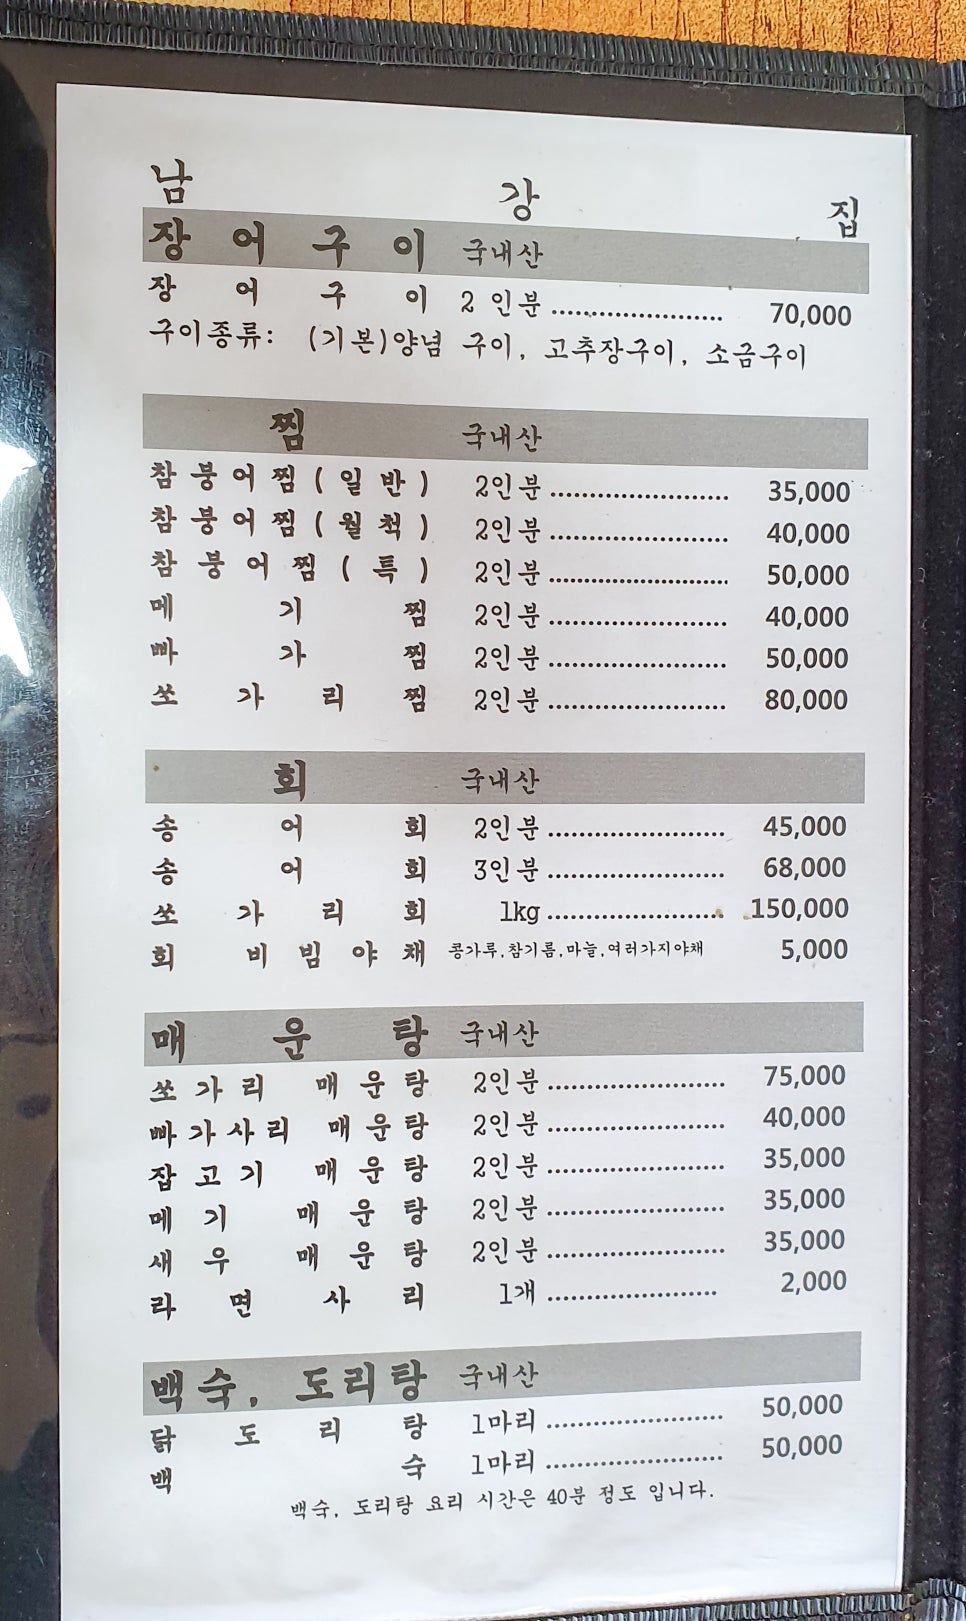 남 강 집
장어구이 국내산
장어구이 2 인분 70,000
구이종류: (기본)양념 구이, 고추장구이, 소금구이
찜 국내산
참붕어찜(일반) 2인분 35,000
참붕어찜(월척) 2인분 40,000
참붕어찜(특) 2인분 50,000
메기찜 2인분 40,000
빠가찜 2인분 50,000
쏘가리찜 2인분 80,000
회 국내산
송어회 2인분 45,000
송어회 3인분 68,000
쏘가리회 1kg 150,000
회 비빔야채 콩가루,참기름,마늘,여러가지야채 5,000
매운탕 국내산
쏘가리 매운탕 2인분 75,000
빠가사리 매운탕 2인분 40,000
잡고기 매운탕 2인분 35,000
메기 매운탕 2인분 35,000
새우 매운탕 2인분 35,000
라면사리 1개 2,000
백숙, 도리탕 국내산
닭도리탕 1마리 50,000
백숙 1마리 50,000
백숙, 도리탕 요리 시간은 40분 정도 입니다.